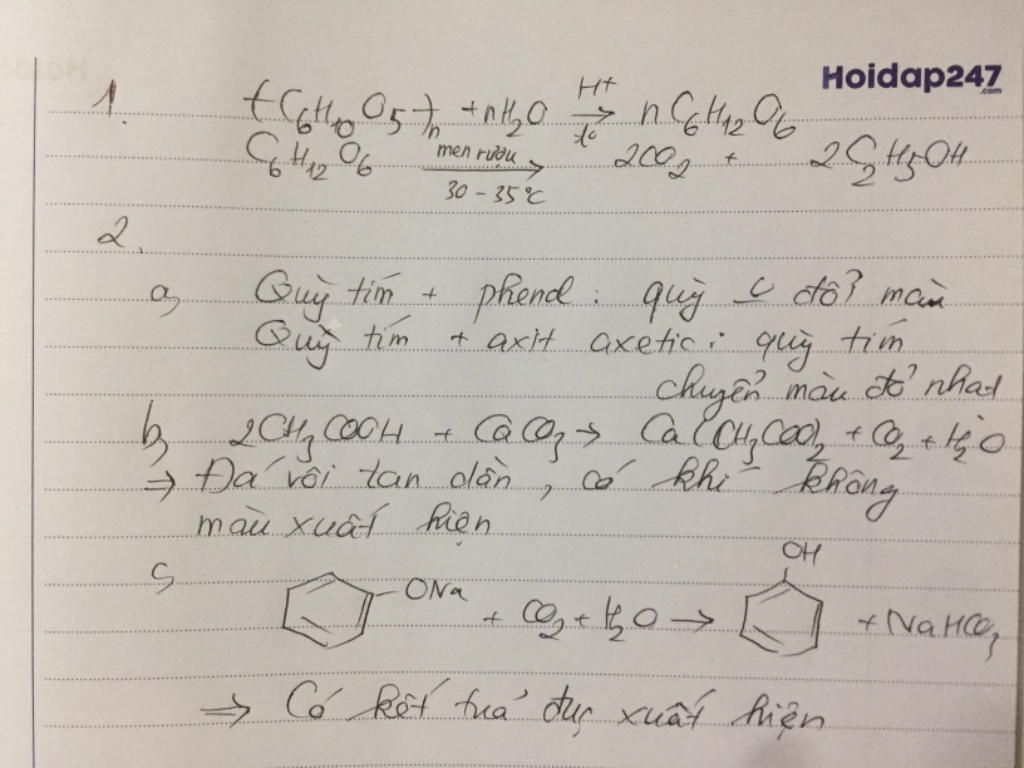 Hoidap247
.com
1. (C6H10O5)n + nH2O H+ → t° nC6H12O6
C6H12O6 men rượu → 30 - 35°C 2CO2 + 2C2H5OH
2.
a, Quỳ tím + phenol : quỳ đổi màu
Quỳ tím + axit axetic : quỳ tím
chuyển màu đỏ nhạt
b, 2CH3COOH + CaCO3 → Ca(CH3COO)2 + CO2 + H2O
⇒ Đá vôi tan dần, có khí không
màu xuất hiện
c, ONa + CO2 + H2O → OH + NaHCO3
⇒ Có kết tủa đục xuất hiện